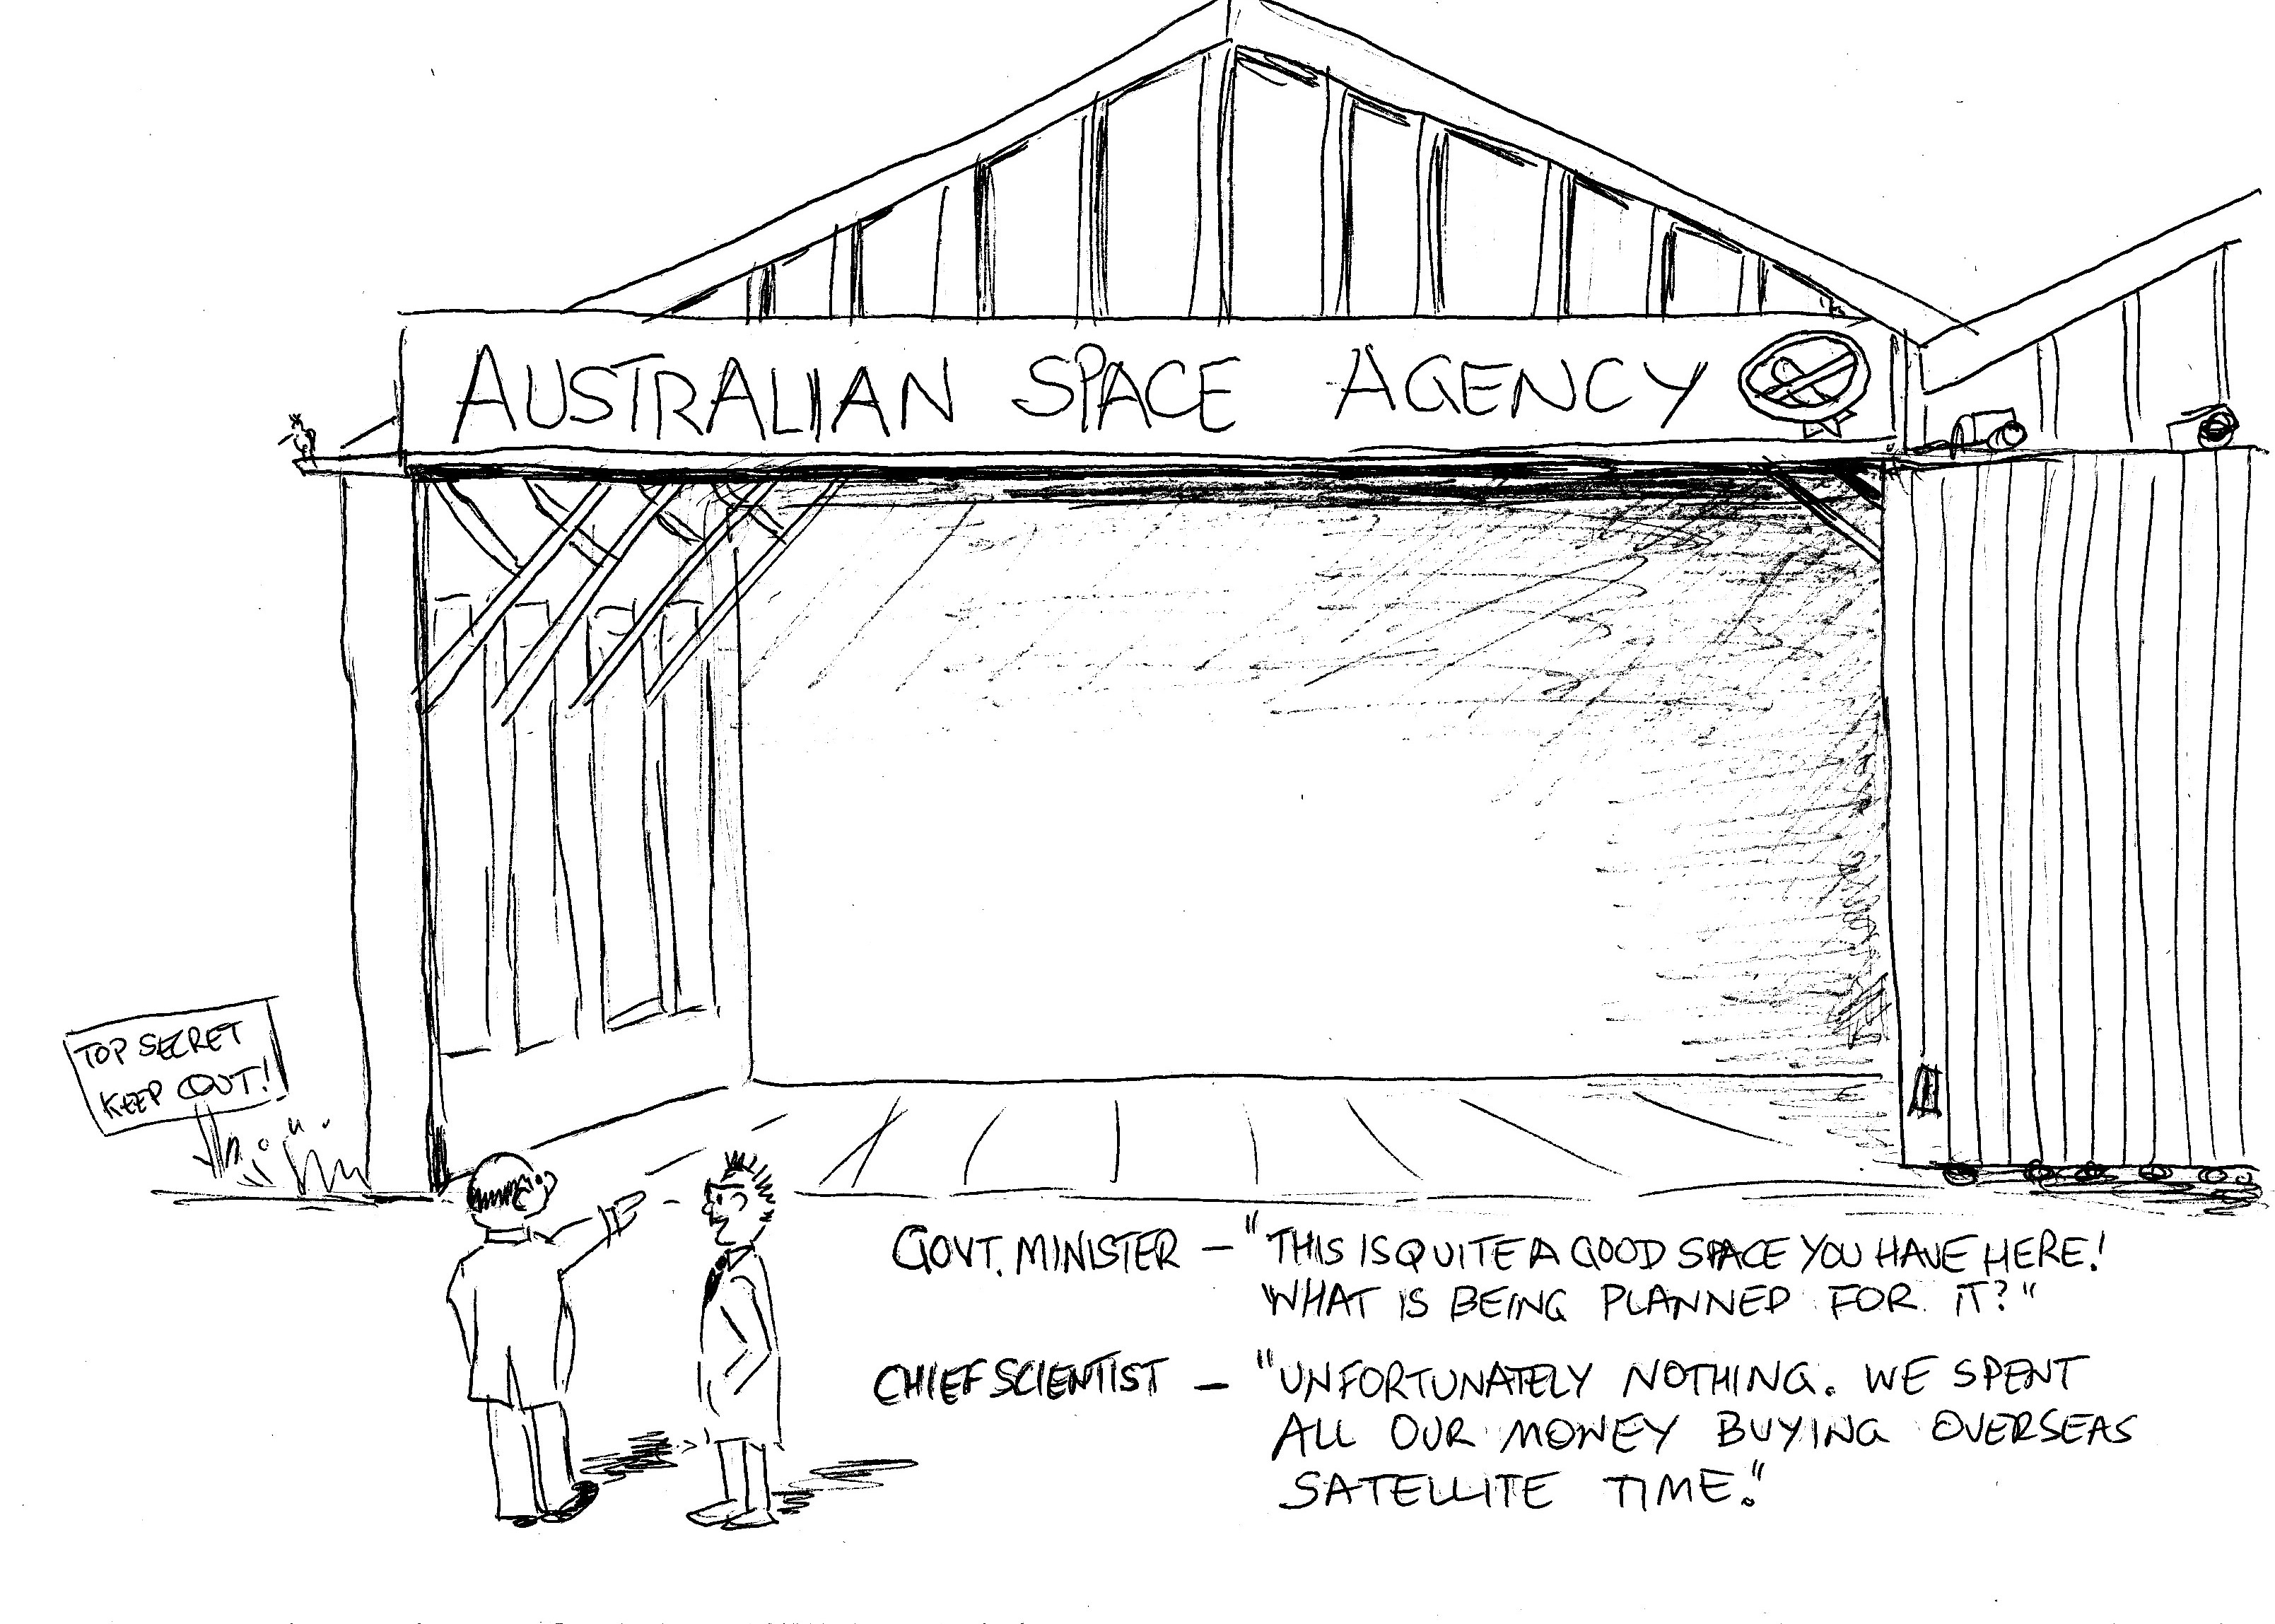 AUSTRALIAN SPACE AGENCY
TOP SECRET
KEEP OUT!
GOVT. MINISTER – "THIS IS QUITE A GOOD SPACE YOU HAVE HERE!
WHAT IS BEING PLANNED FOR IT?"
CHIEF SCIENTIST – "UNFORTUNATELY NOTHING. WE SPENT
ALL OUR MONEY BUYING OVERSEAS
SATELLITE TIME."